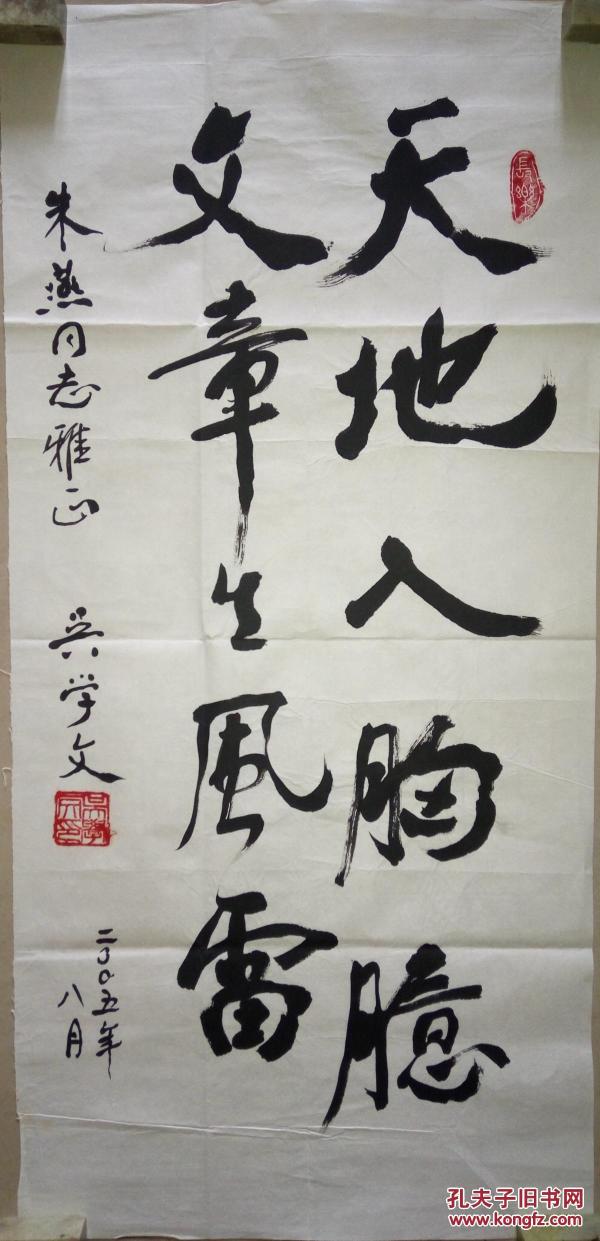 天地入胸臆
文章生風雷
朱燕同志雅正
吴学文
吴學文印
二〇〇五年
八月
孔夫子旧书网
www.kongfz.com